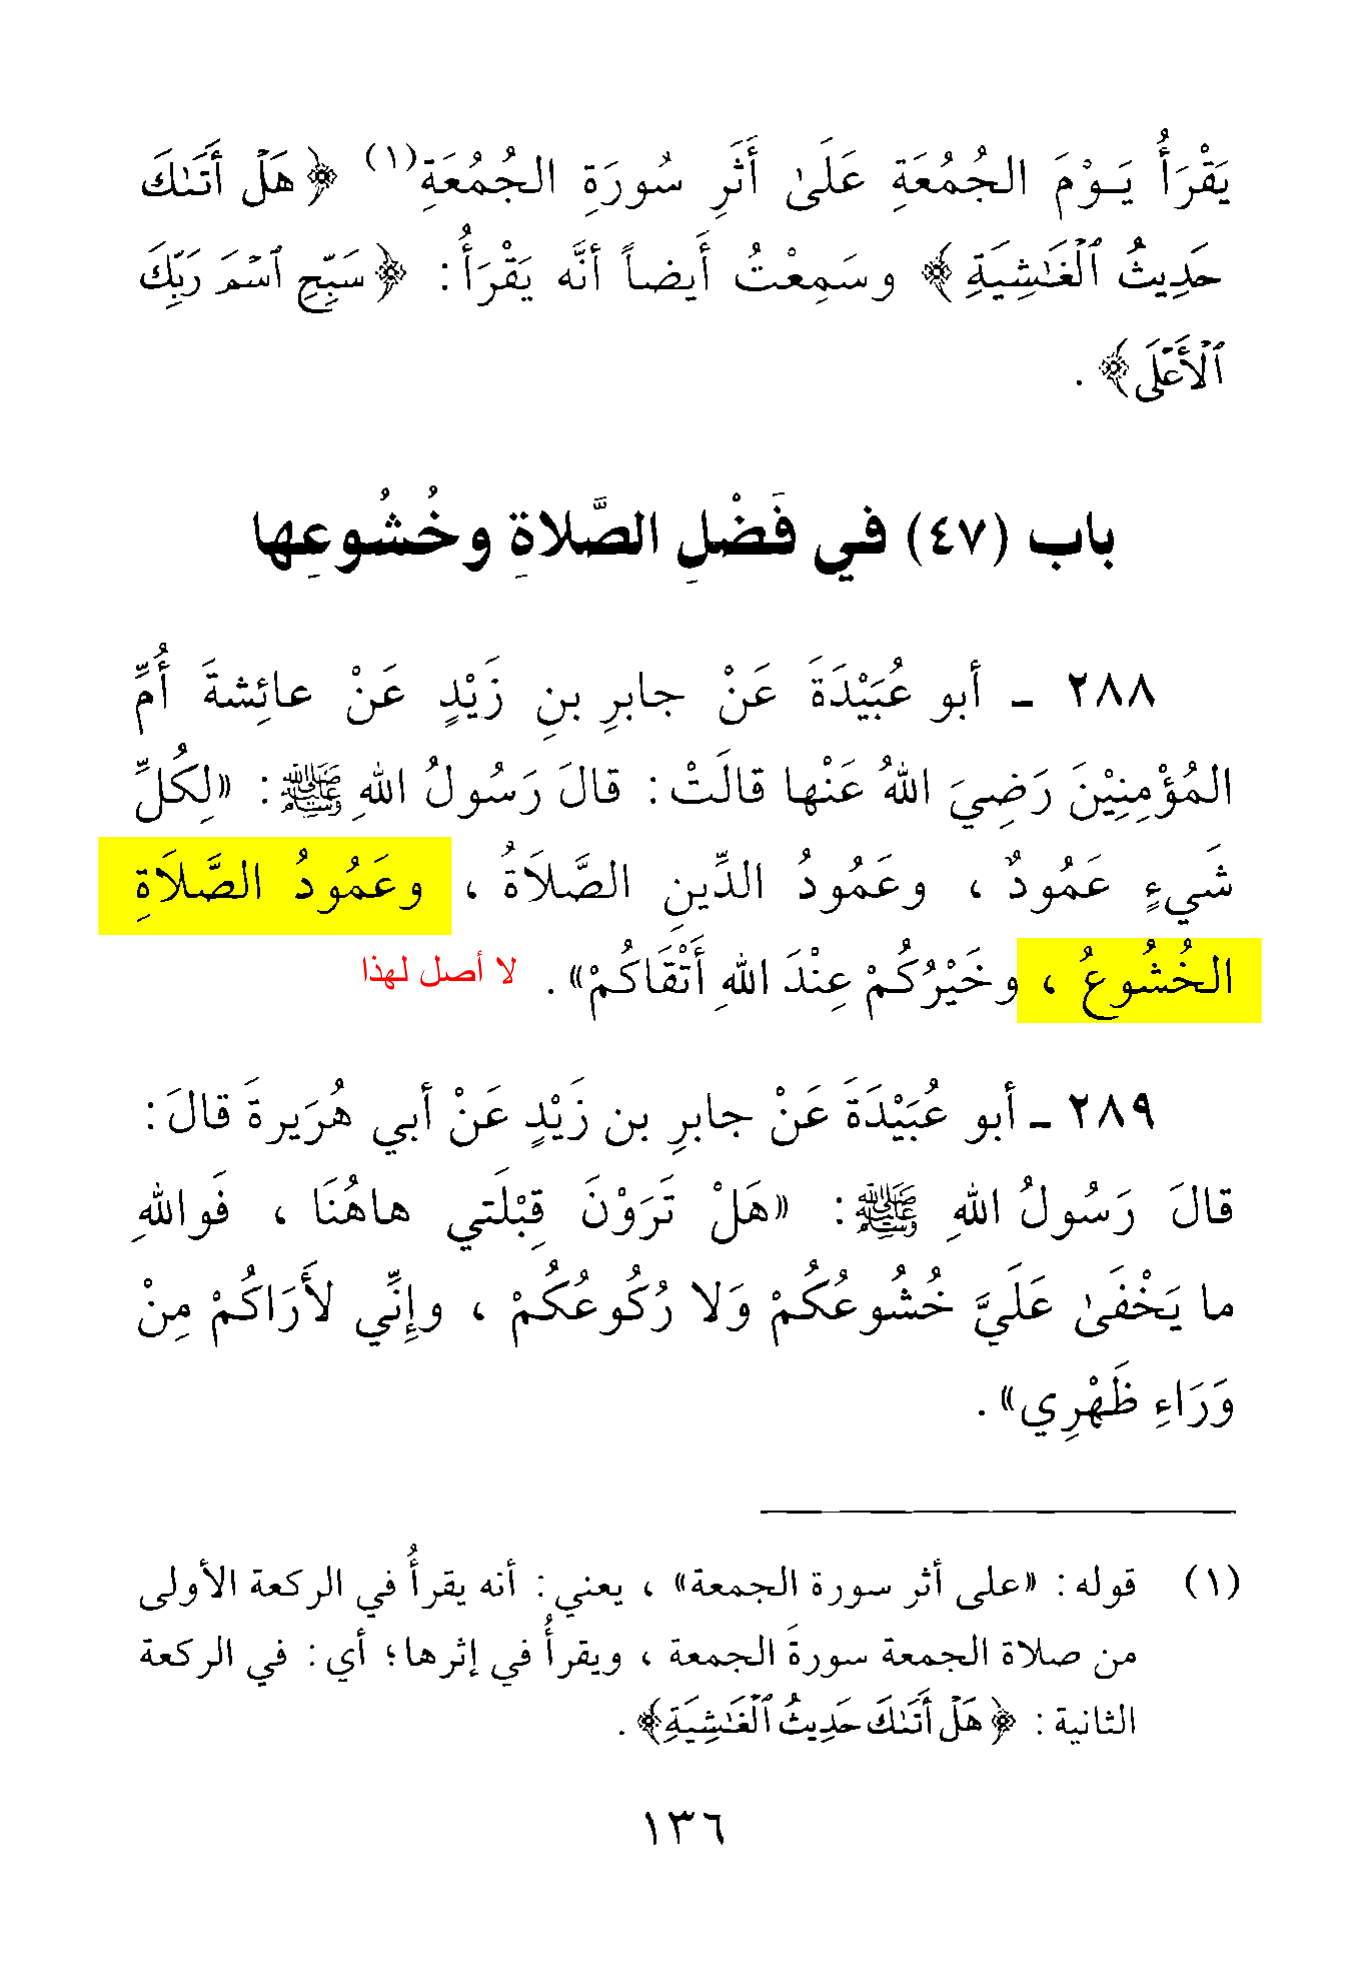 يَقْرَأُ يَـوْمَ الجُمُعَةِ عَلَىٰ أَثَرِ سُورَةِ الجُمُعَةِ(١) ﴿هَلْ أَتَىٰكَ
حَدِيثُ ٱلْغَـٰشِيَةِ﴾ وسَمِعْتُ أَيضاً أنَّه يَقْرَأُ: ﴿سَبِّحِ ٱسْمَ رَبِّكَ
ٱلْأَعْلَى﴾.
باب (٤٧) في فَضْلِ الصَّلاةِ وخُشُوعِها
٢٨٨ ـ أبو عُبَيْدَةَ عَنْ جابرِ بنِ زَيْدٍ عَنْ عائِشةَ أُمِّ
المُؤْمِنِيْنَ رَضِيَ اللهُ عَنْها قالَتْ: قالَ رَسُولُ اللهِ ﷺ: «لِكُلِّ
شَيءٍ عَمُودٌ، وعَمُودُ الدِّينِ الصَّلاَةُ، وعَمُودُ الصَّلاَةِ
الخُشُوعُ، وخَيْرُكُمْ عِنْدَ اللهِ أَتْقَاكُمْ». لا أصل لهذا
٢٨٩ ـ أبو عُبَيْدَةَ عَنْ جابرِ بن زَيْدٍ عَنْ أبي هُرَيرةَ قالَ:
قالَ رَسُولُ اللهِ ﷺ: «هَلْ تَرَوْنَ قِبْلَتي هاهُنَا، فَواللهِ
ما يَخْفَىٰ عَلَيَّ خُشُوعُكُمْ وَلا رُكُوعُكُمْ، وإِنِّي لأَرَاكُمْ مِنْ
وَرَاءِ ظَهْرِي».
(١) قوله: «على أثر سورة الجمعة»، يعني: أنه يقرأُ في الركعة الأولى
من صلاة الجمعة سورةَ الجمعة، ويقرأُ في إثرها؛ أي: في الركعة
الثانية: ﴿هَلْ أَتَىٰكَ حَدِيثُ ٱلْغَـٰشِيَةِ﴾.
١٣٦